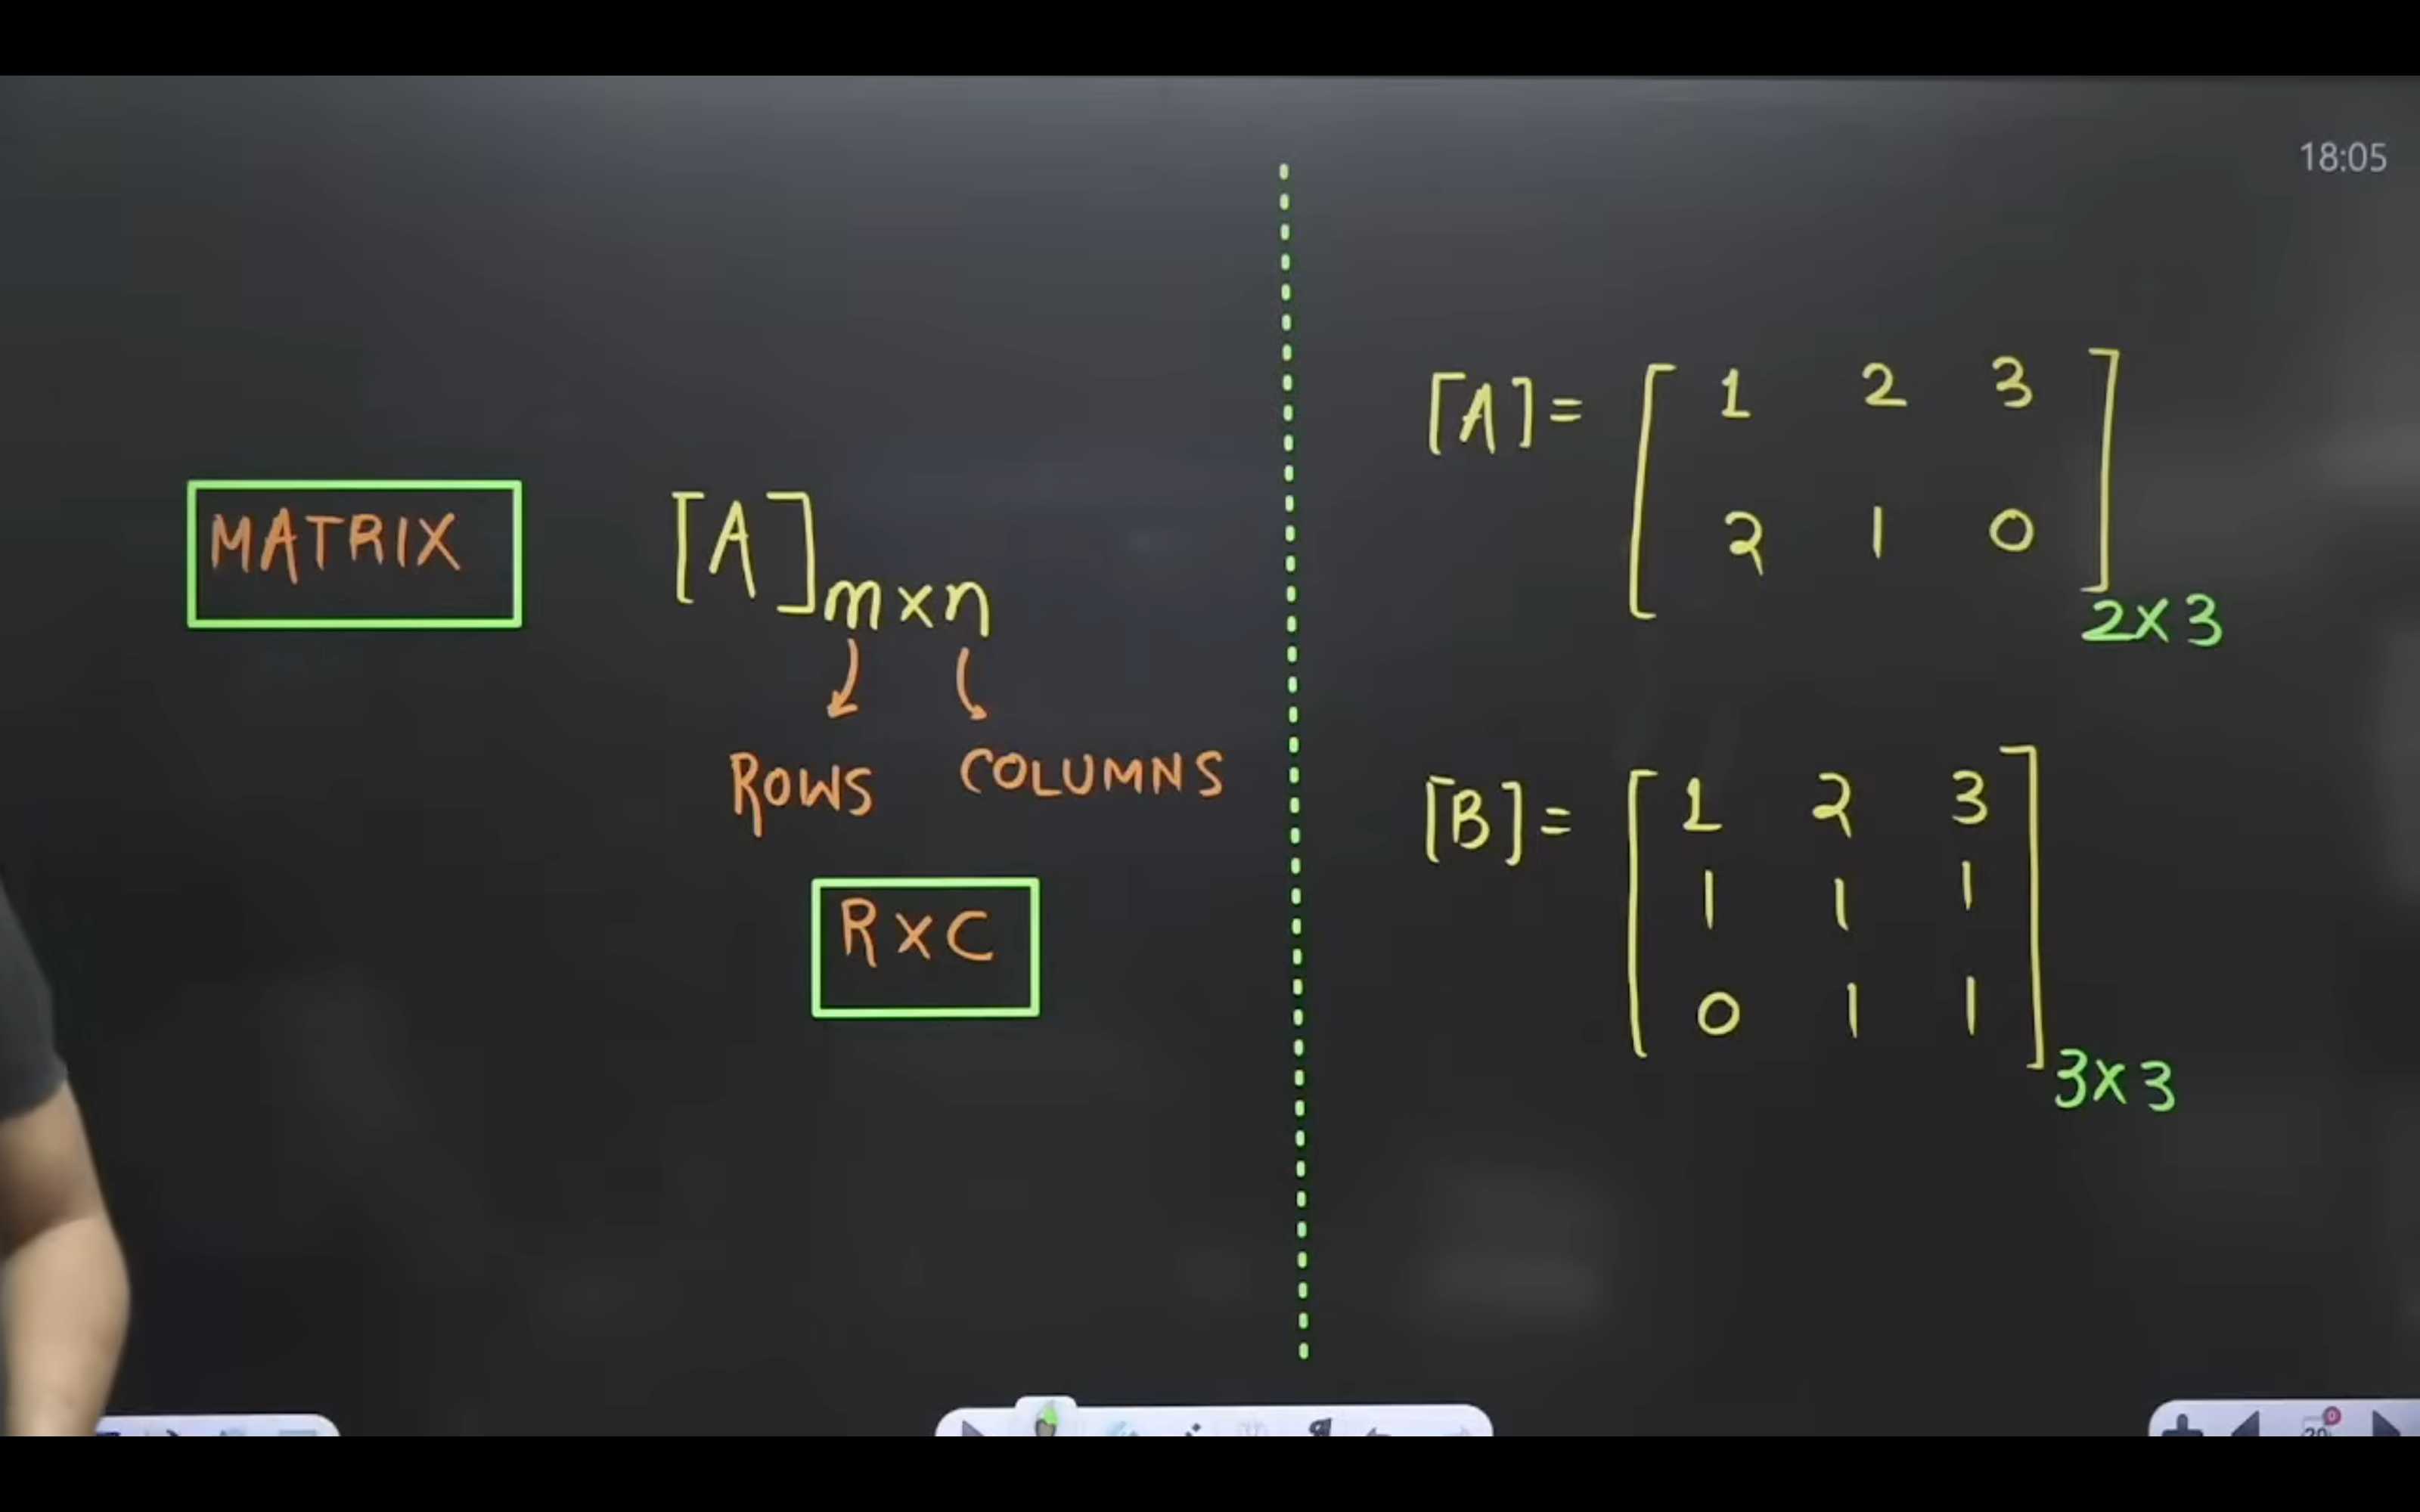 18:05
MATRIX
[A]m×n
ROWS COLUMNS
R×C
[A] = [ 1 2 3
2 1 0 ]2×3
[B] = [ 1 2 3
1 1 1
0 1 1 ]3×3